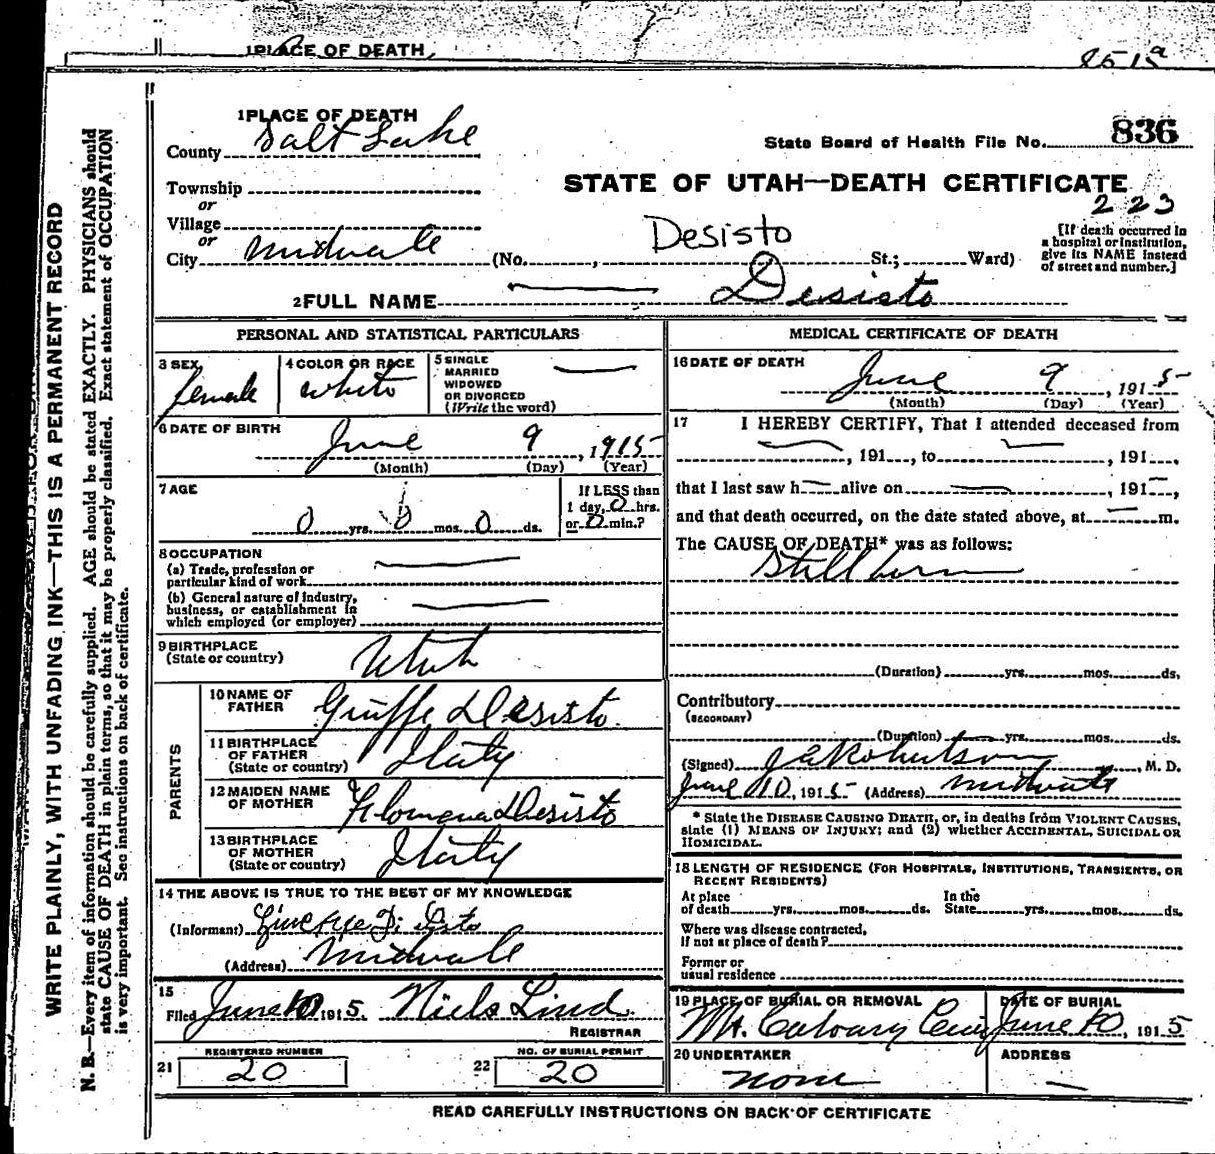 1 PLACE OF DEATH
1 PLACE OF DEATH
County Salt Lake
State Board of Health File No. 836
Township
or
Village
or
City Midvale
STATE OF UTAH—DEATH CERTIFICATE
223
Desisto
(No. , St.; Ward)
[If death occurred in
a hospital or institution,
give its NAME instead
of street and number.]
2 FULL NAME Desisto
PERSONAL AND STATISTICAL PARTICULARS
3 SEX
female
4 COLOR OR RACE
white
5 SINGLE
MARRIED
WIDOWED
OR DIVORCED
(Write the word)
6 DATE OF BIRTH
June 9, 1915
(Month) (Day) (Year)
7 AGE
0 yrs. 0 mos. 0 ds.
If LESS than
1 day, 0 hrs.
or 0 min.?
8 OCCUPATION
(a) Trade, profession or
particular kind of work
(b) General nature of industry,
business, or establishment in
which employed (or employer)
9 BIRTHPLACE
(State or country) Utah
PARENTS
10 NAME OF
FATHER Desisto
11 BIRTHPLACE
OF FATHER
(State or country) Italy
12 MAIDEN NAME
OF MOTHER Filomena Desisto
13 BIRTHPLACE
OF MOTHER
(State or country) Italy
14 THE ABOVE IS TRUE TO THE BEST OF MY KNOWLEDGE
(Informant)
(Address) Midvale
15
Filed June 10 1915. Niels Lind
REGISTRAR
21 REGISTERED NUMBER
20
22 NO. OF BURIAL PERMIT
20
MEDICAL CERTIFICATE OF DEATH
16 DATE OF DEATH
June 9, 1915
(Month) (Day) (Year)
17 I HEREBY CERTIFY, That I attended deceased from
, 191 , to , 191 ,
that I last saw h alive on , 191 ,
and that death occurred, on the date stated above, at m.
The CAUSE OF DEATH* was as follows:
Still born
(Duration) yrs. mos. ds.
Contributory
(SECONDARY)
(Duration) yrs. mos. ds.
(Signed) J A Robertson, M. D.
June 10, 1915 (Address) Midvale
* State the DISEASE CAUSING DEATH, or, in deaths from VIOLENT CAUSES,
state (1) MEANS OF INJURY; and (2) whether ACCIDENTAL, SUICIDAL OR
HOMICIDAL.
18 LENGTH OF RESIDENCE (FOR HOSPITALS, INSTITUTIONS, TRANSIENTS, OR
RECENT RESIDENTS)
At place In the
of death yrs. mos. ds. State yrs. mos. ds.
Where was disease contracted,
if not at place of death?
Former or
usual residence
19 PLACE OF BURIAL OR REMOVAL
Mt. Calvary Cem
DATE OF BURIAL
June 10, 1915
20 UNDERTAKER
none
ADDRESS
READ CAREFULLY INSTRUCTIONS ON BACK OF CERTIFICATE
WRITE PLAINLY, WITH UNFADING INK—THIS IS A PERMANENT RECORD
N. B.—Every item of information should be carefully supplied. AGE should be stated EXACTLY. PHYSICIANS should
state CAUSE OF DEATH in plain terms, so that it may be properly classified. Exact statement of OCCUPATION
is very important. See instructions on back of certificate.